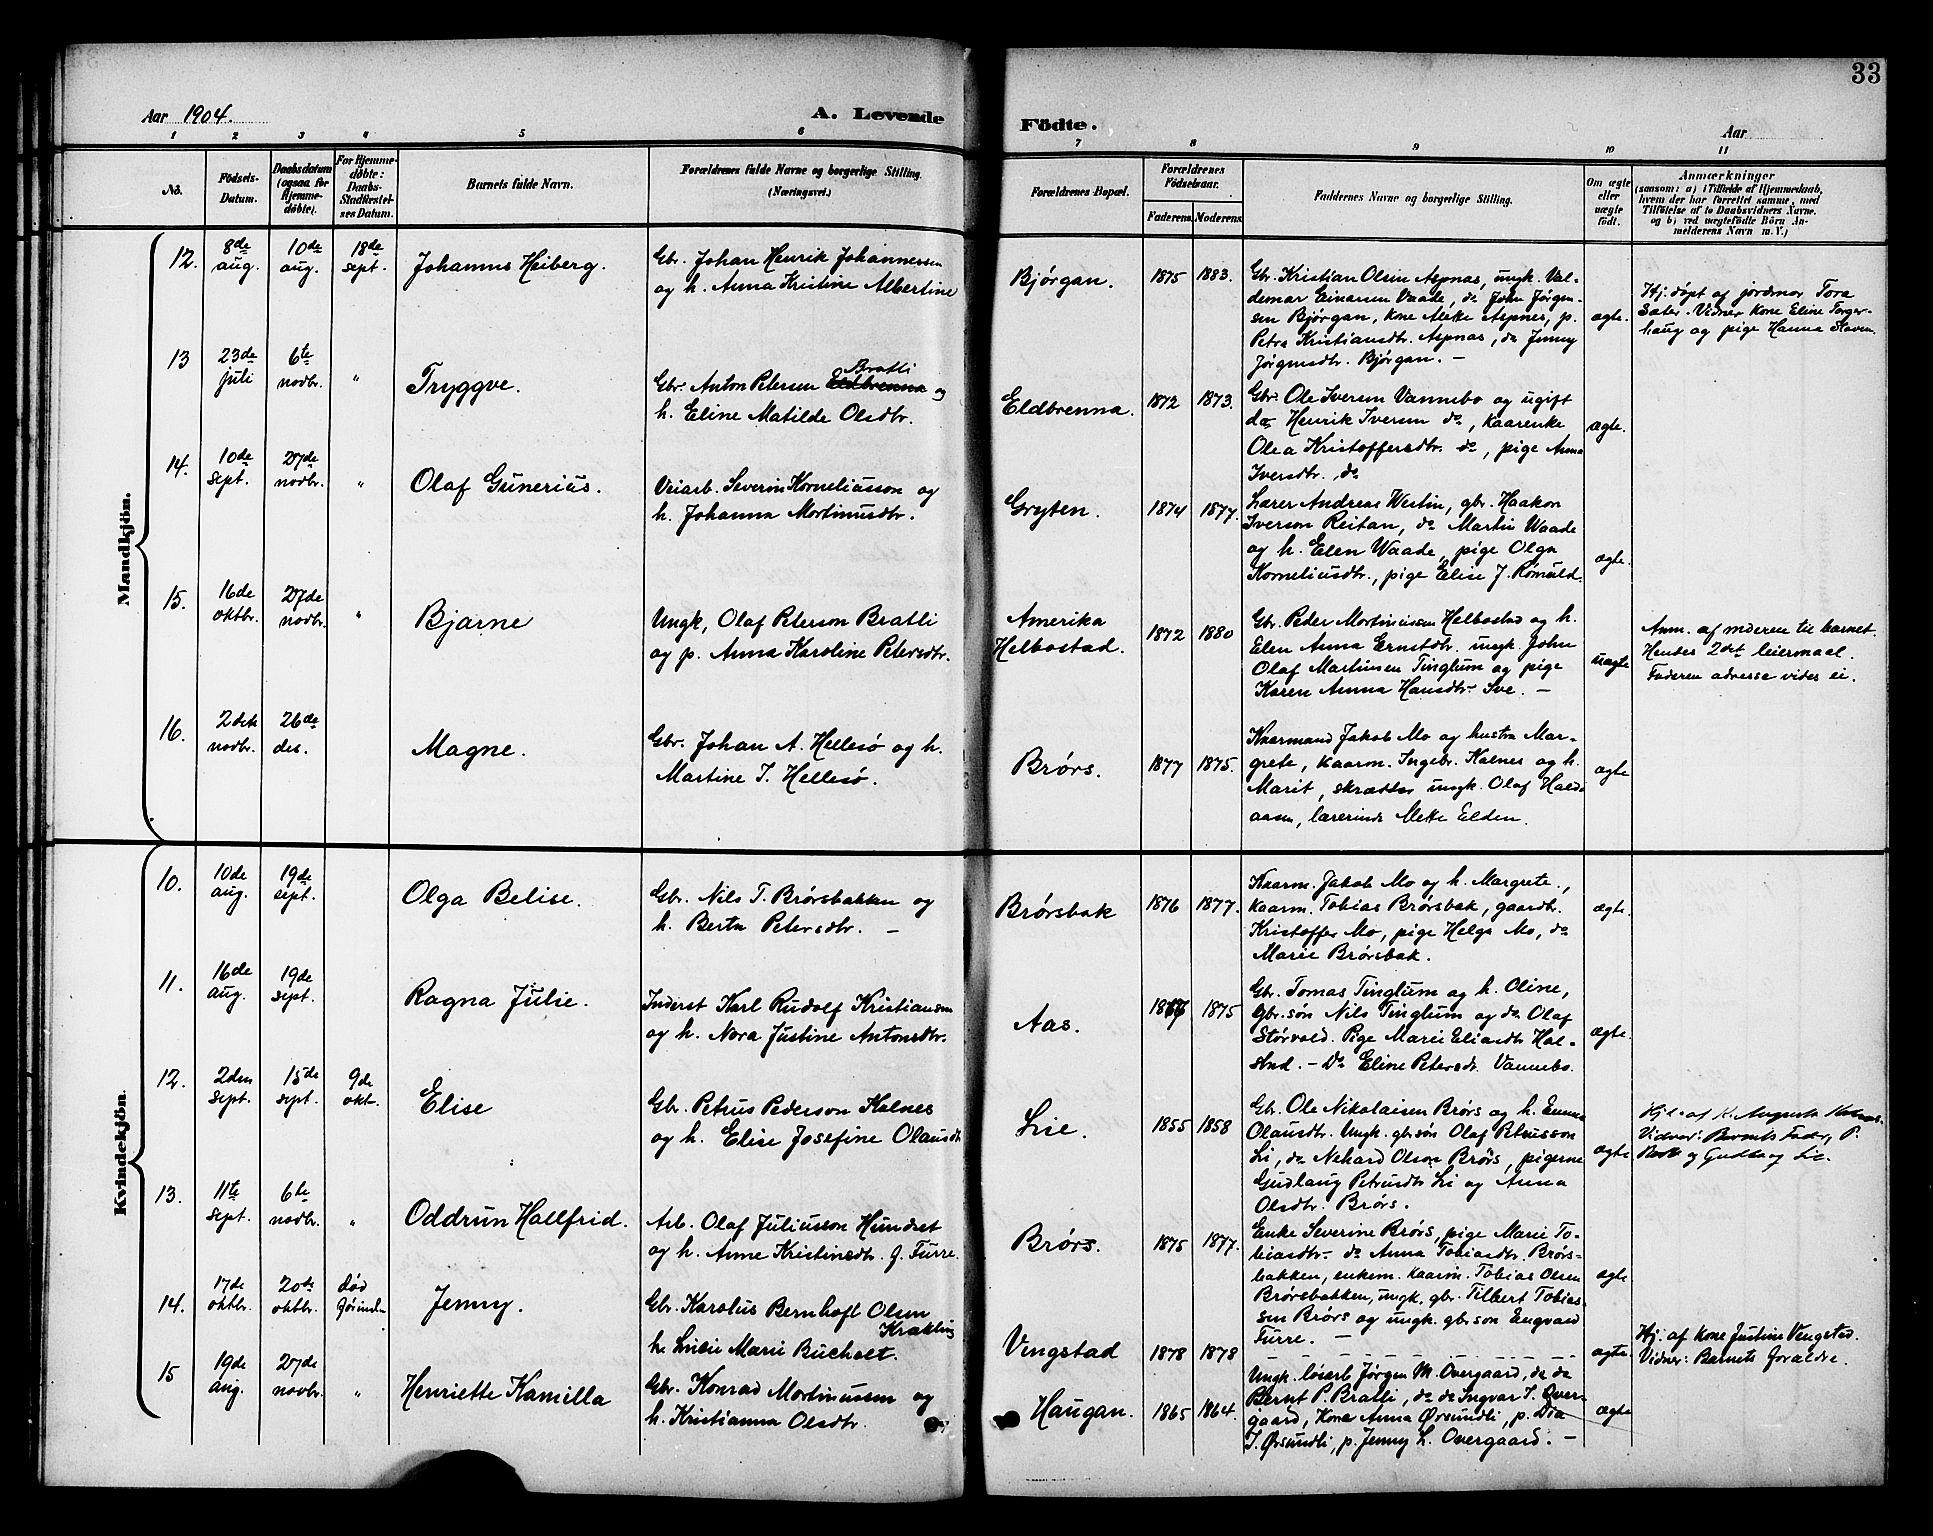 33
Aar 1904.
A. Levende Födte.
Aar
1 2 3 4 5 6 7 8 9 10 11
No.
Födsels-Datum.
Daabsdatum (ogsaa for Hjemme-döbte).
For Hjemme-döbte: Daabs-Stadfæstel-ses Datum.
Barnets fulde Navn.
Forældrenes fulde Navne og borgerlige Stilling. (Næringsvei.)
Forældrenes Bopæl.
Forældrenes Födselsaar.
Faderens. Moderens.
Faddernes Navne og borgerlige Stilling.
Om ægte eller uægte födt.
Anmærkninger
(saasom: a) i Tilfælde af Hjemmedaab,
hvem der har forrettet samme, med
Tilföielse af to Daabsvidners Navne.
og b) ved uægtefödte Börn An-
melderens Navn m. V.)
Mandkjön.
12. 8de aug. 10de aug. 18de sept.
Johannes Heiberg.
Gbr. Johan Henrik Johannessen
og h. Anna Kristine Albertine
Bjørgan. 1875 1883.
Gbr. Kristian Olsen Aspnas, ungk. Val-
demar Einarsen Vaade, do John Jørgen-
sen Bjørgan, kone Mette Aspnes, p.
Petra Kristiansdtr. Aspnas, do Jenny
Jørgensdtr. Bjørgan. —
ægte.
Hj. døpt af jordmor Tora
Sæter. Vidner kone Eline Torger-
haug og pige Hanna Staven.
13 23de juli 6te novbr. "
Tryggve.
Bratli
Gbr. Anton Petersen Eldbrenna og
h. Eline Matilde Olsdtr.
Eldbrenna. 1872 1873.
Gbr. Ole Iversen Vannebo og ugift
do Henrik Iversen do, kaarenke
Olea Kristoffersdtr. do, pige Anna
Iversdtr. do
ægte.
14. 10de sept. 27de novbr. "
Olaf Gunerius.
Veiarb. Severin Korneliusson og
h. Johanna Mortinusdtr.
Gryten. 1874 1877.
Lærer Andreas Westin, gbr. Haakon
Iverson Reitan, do Martin Waade
og h. Elen Waade, pige Olga
Korneliusdtr., pige Elise J. Rømuld.
ægte.
15. 16de oktbr. 27de novbr. "
Bjarne
Ungk. Olaf Peterson Bratli
og p. Anna Karoline Petersdtr.
Amerika
Helbostad. 1872 1880
Gbr. Peder Mortinussen Helbostad og h.
Elen Anna Ernstdtr. ungk. John
Olaf Martinsen Tinglum og pige
Karen Anna Hansdtr. Sve. —
uægte
Anm. af moderen til barnet.
Hendes 2det leiermaal.
Faderen adresse vides ei.
16. 2den novbr. 26de des.
Magne.
Gbr. Johan A. Hellesø og h.
Martine I. Hellesø.
Brørs. 1877 1875.
Kaarmand Jakob Mo og hustru Mar-
grete, kaarm. Ingebr. Kalnes og h.
Marit, skrædder ungk. Olaf Hald-
aasen, lærerinde Mette Elden.
ægte
Kvindekjön.
10. 10de aug. 19de sept.
Olga Belise.
Gbr. Nils T. Brørsbakken og
h. Berta Petersdtr. —
Brørsbak 1876 1877.
Kaarm. Jakob Mo og h. Margrete.,
kaarm. Tobias Brørsbak, gaardbr.
Kristoffer Mo, pige Helga Mo, do
Marie Brørsbak.
ægte.
11. 16de aug. 19de sept.
Ragna Julie.
Inderst Karl Rudolf Kristiansen
og h. Nora Justine Antonsdtr.
Aas. 1875
Gbr. Tomas Tinglum og h. Oline,
gbr.søn Nils Tinglum og do Olaf
Størvold. Pige Marie Eliasdtr Hal-
stad. — Do Eline Petersdtr. Vannebo.
ægte.
12. 2den sept. 15de sept. 9de okt.
Elise
Gbr. Petrus Pederson Kalnes
og h. Elise Josefine Olausdtr
Lie. 1855 1858
Gbr. Ole Nikolaisen Brørs og h. Emma
Olausdtr. Ungk. gbr.søn Olaf Petrusson
Li, do Nehard Olson Brørs, pigerne
Gudlaug Petrusdtr Li og Anna
Olsdtr. Brørs.
ægte
Hj. d. af K. Augusta Kalnes.
Vidner: Barnets Fader, P.
og Gudlaug Lie.
13. 11te sept. 6te novbr. "
Oddrun Hallfrid.
Arb. Olaf Juliusson Hundset
og h. Anne Kristinedtr. f. Furre.
Brørs. 1875 1877.
Enke Severine Brørs, pige Marie To-
biasdtr. — do Anna Tobiasdtr. Brørs-
bakken, enkem. kaarm. Tobias Olsen
Brørsbakken, ungk. gbr. Tilbert Tobias-
sen Brørs og ungk. gbr.søn Engvard
Furre. —
ægte
14. 17de oktbr. 20de oktbr. død førinden
Jenny.
Gbr. Karolus Bernhoft Olsen
Krækling
h. Lucie Marie Bucholt.
Vengstad 1878 1878
ægte.
Hj. af kone Justine Vengstad.
Vidner: Barnets forældre.
15 19de aug. 27de novbr. "
Henriette Kamilla
Gbr. Konrad Mortinussen og
h. Kristianna Olsdtr.
Haugan. 1865 1864.
Ungk. løsarb Jørgen M. Overgaard, do do
Bernt P. Bratli, do do Ingvar J. Over-
gaard, Kone Anna Ørsundli, p. Dia
J. Ørsundli, p. Jenny L. Overgaard. —
ægte